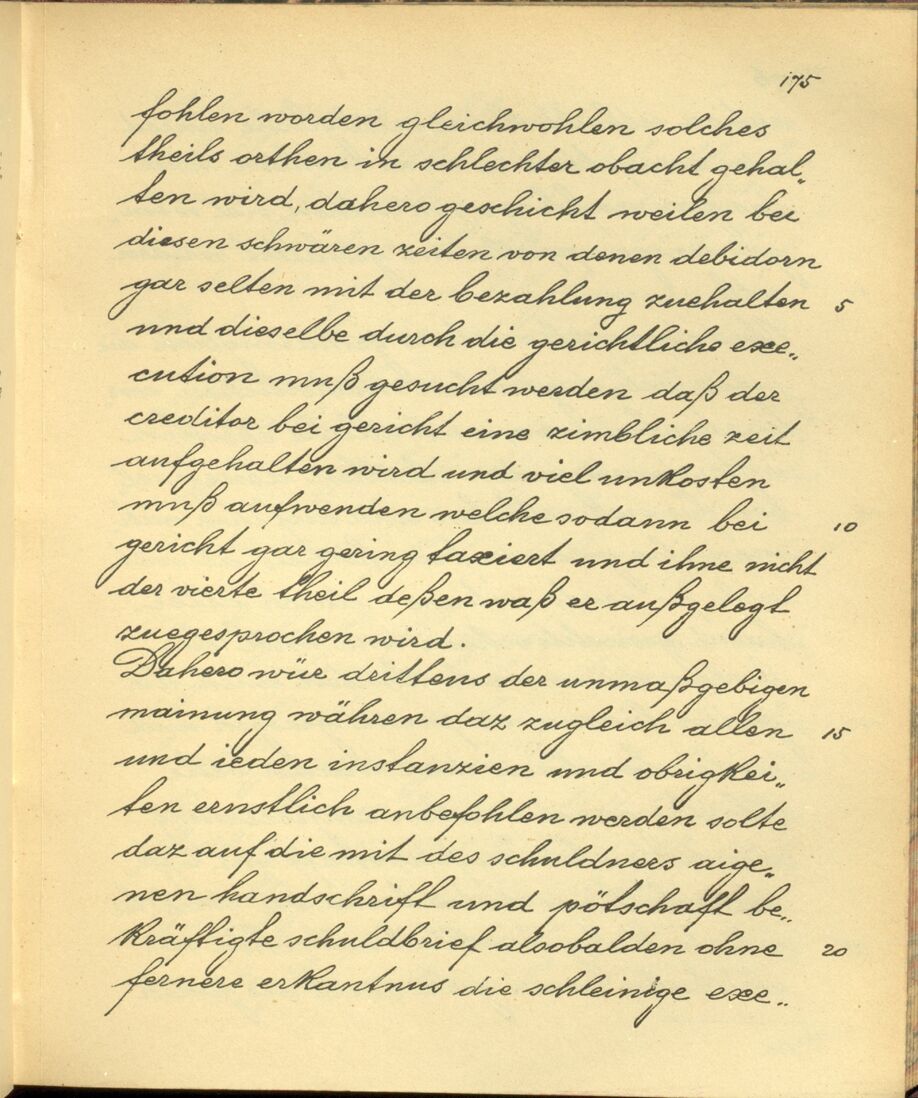 175
fohlen worden gleichwohlen solches
theils orthen in schlechter obacht gehal„
ten wird, dahero geschicht weilen bei
diesen schwären zeiten von denen debidorn
gar selten mit der bezahlung zuehalten 5
und dieselbe durch die gerichtliche exe„
cution muß gesucht werden daß der
creditor bei gericht eine zimbliche zeit
aufgehalten wird und viel unkosten
muß aufwenden welche sodann bei 10
gericht gar gering taxiert und ihne nicht
der vierte theil deßen waß er außgelegt
zuegesprochen wird.
Dahero wür drittens der unmaßgebigen
mainung währen daz zugleich allen 15
und ieden instanzien und obrigkei„
ten ernstlich anbefohlen werden solte
daz auf die mit des schuldners aige„
nen handschrift und pötschaft be„
kräftigte schuldbrief alsobalden ohne 20
fernere erkantnus die schleinige exe„